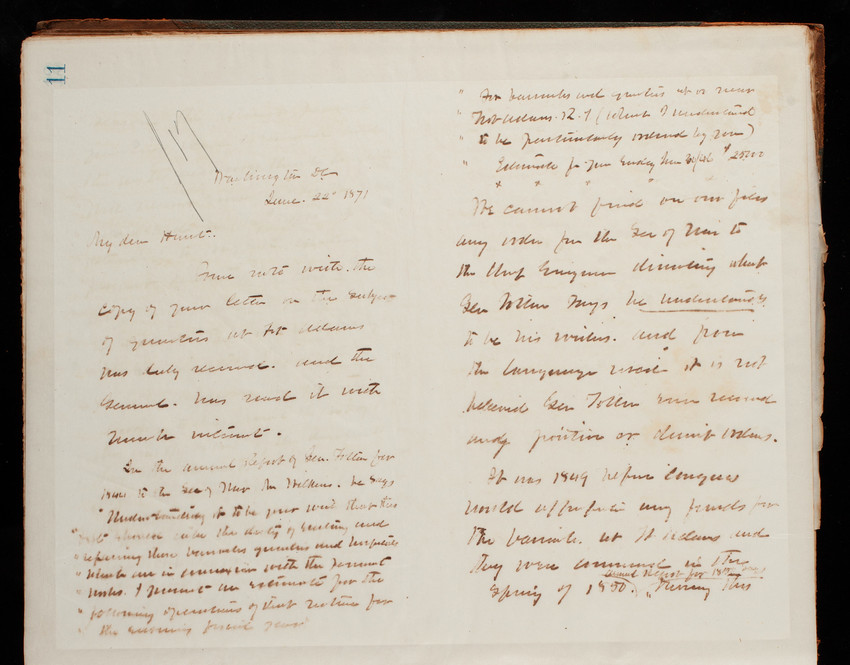 11
Washington DC
June. 22d 1871
My dear Hunt.
Your note with the
copy of your letter on the subject
of quarters at Ft Adams
was duly received. and the
General. has read it with
much interest.
In the annual Report of Gen. Totten for
1844 to the Sec of War Mr Wilkins. he says
"Understanding it to be your wish that this
" should take the duty of erecting and
" repairing those barracks quarters and hospitals
" which are in connexion with the permanent
" works. I present an estimate for the
" following operations of that nature for
" the ensuing fiscal year
" For barracks and quarters at or near
" Fort Adams. R.I (which I understand
" to be particularly ordered by you)
" Estimate for year ending June $25000
" " " "
We cannot "find" on our files
any order from the Sec of War to
the Chief Engineer directing what
Gen Totten says he understands
to be his wishes. and from
the language used it is not
believed Gen Totten ever received
any positive or direct orders.
It was 1849 before Congress
would appropriate any funds for
the barracks. at Ft Adams and
they were commenced in the
Annual Report for 1850
Spring of 1850. During this